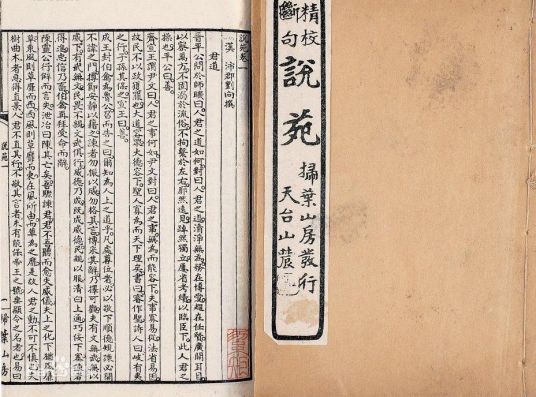 精校
斷句
說苑
掃葉山房發行
天台山農
說苑卷一
漢 沛郡劉向撰
君道
晉平公問於師曠曰人君之道如何對曰人君之道清淨無為務在博愛趨在任賢廣開耳目
以察萬方不固溺於流俗不拘繫於左右廓然遠見踔然獨立屢省考績以臨臣下此人君之
操也平公曰善
齊宣王謂尹文曰人君之事何如尹文對曰人君之事無為而能容下夫事寡易從法省易因
故民不以政獲罪也大道容眾大德容下聖人寡為而天下理矣書曰睿作聖詩人曰岐有夷
之行子孫其保之宣王曰善
成王封伯禽為魯公召而告之曰爾知為人上之道乎凡處尊位者必以敬下順德規諫必開
不諱之門撙節安靜以藉之諫者勿振以威勿格其言博采其辭乃擇可觀夫有文無武無以
威下有武無文民畏不親文武俱行威德乃成既成威德民親以服清白上通巧佞下塞諫者
得進忠信乃畜伯禽再拜受命而辭
陳靈公行僻而言失泄冶曰陳其亡矣吾驟諫君君不吾聽而愈失威儀夫上之化下猶風靡
草東風則草靡而西西風則草靡而東在風所由而草為之靡是故人君之動不可不慎也夫
樹曲木者惡得直景人君不直其行不敬其言者未有能保帝王之號垂顯令之名者也易曰
說苑
一
掃葉山房